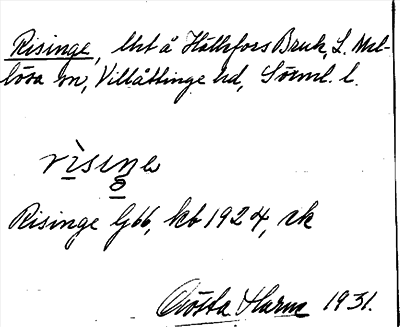 Risinge, lht å Hälleforsbruk, L. Mel-
lösa sn, Villåttinge hd, Söerml. l.
rìsiŋə
Risinge G66, kb 1924, rk
Gösta 1931.